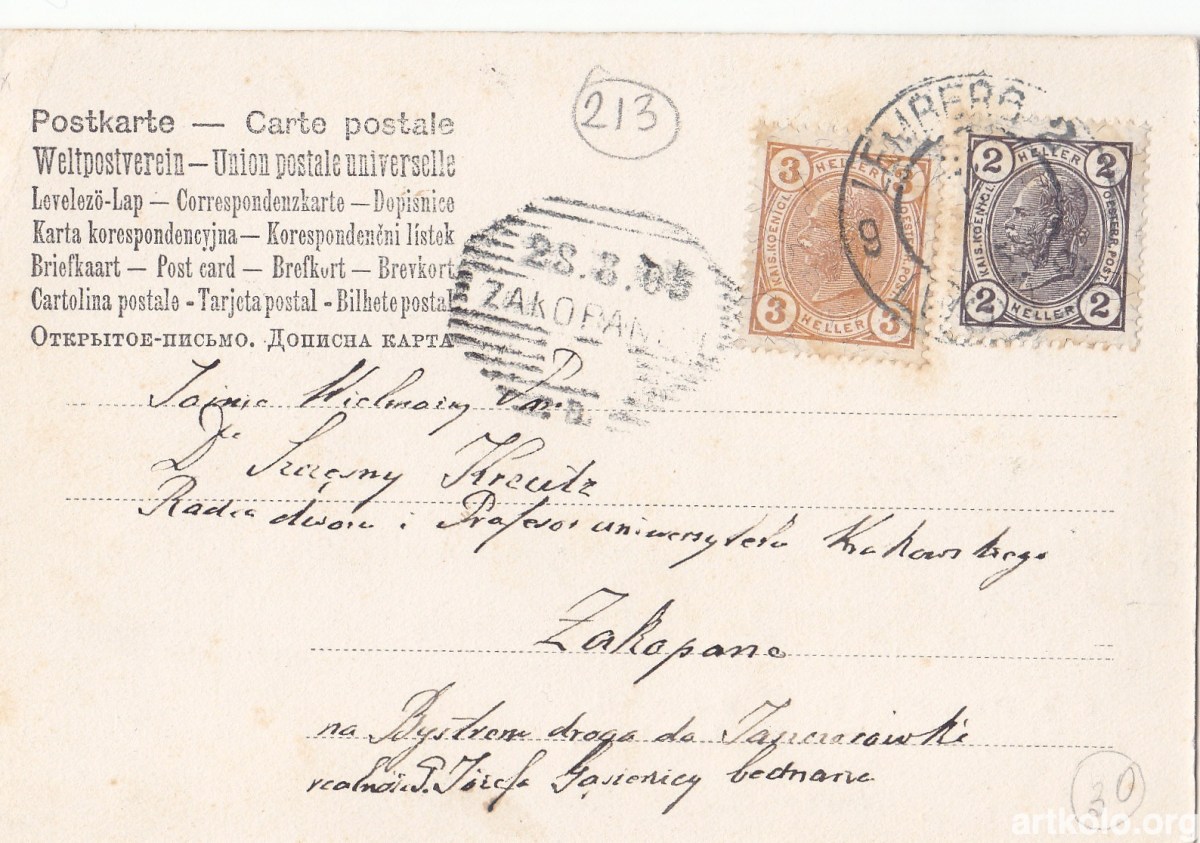 213
Postkarte — Carte postale
Weltpostverein — Union postale universelle
Levelezö-Lap — Correspondenzkarte — Dopišnice
Karta korespondencyjna — Korespondenčni lístek
Briefkaart — Post card — Brefkort — Brevkort
Cartolina postale - Tarjeta postal - Bilhete postal
Открытое-письмо. Дописна карта
28.8.05
ZAKOPANE
LEMBERG 2
9
3 HELLER 3
KAIS. KOENIGL. OESTERR. POST
3 HELLER 3
2 HELLER 2
KAIS. KOENIGL. OESTERR. POST.
2 HELLER 2
Wielmożny Pan
Dr Szczęsny Kreutz
Radca dworu i Profesor uniwersytetu Krakowskiego
Zakopane
na Bystrem droga do
realność P. Józefa Gąsienicy bednarza
30
artkolo.org